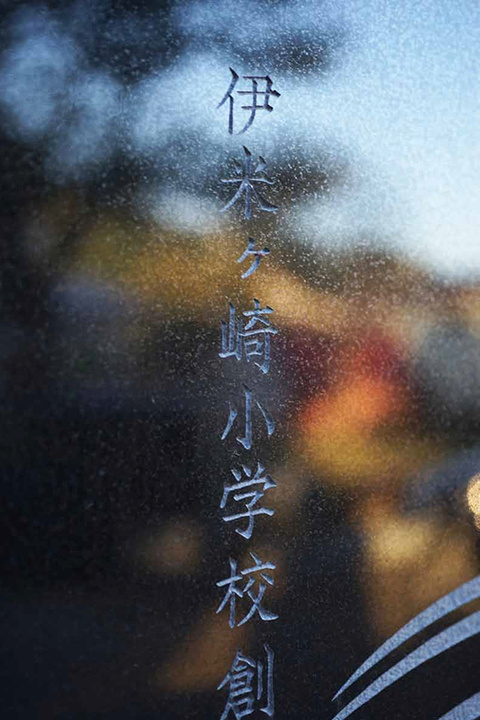 伊米ヶ崎小学校創